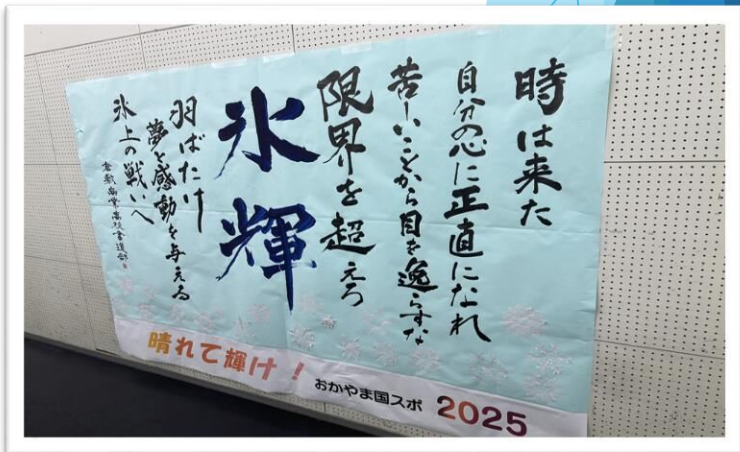 時は来た
自分の心に正直になれ
苦しいことから目を逸らすな
限界を超えろ
氷輝
羽ばたけ
夢と感動を与える
氷上の戦いへ
倉敷商業高校書道部
晴れて輝け！
おかやま国スポ 2025